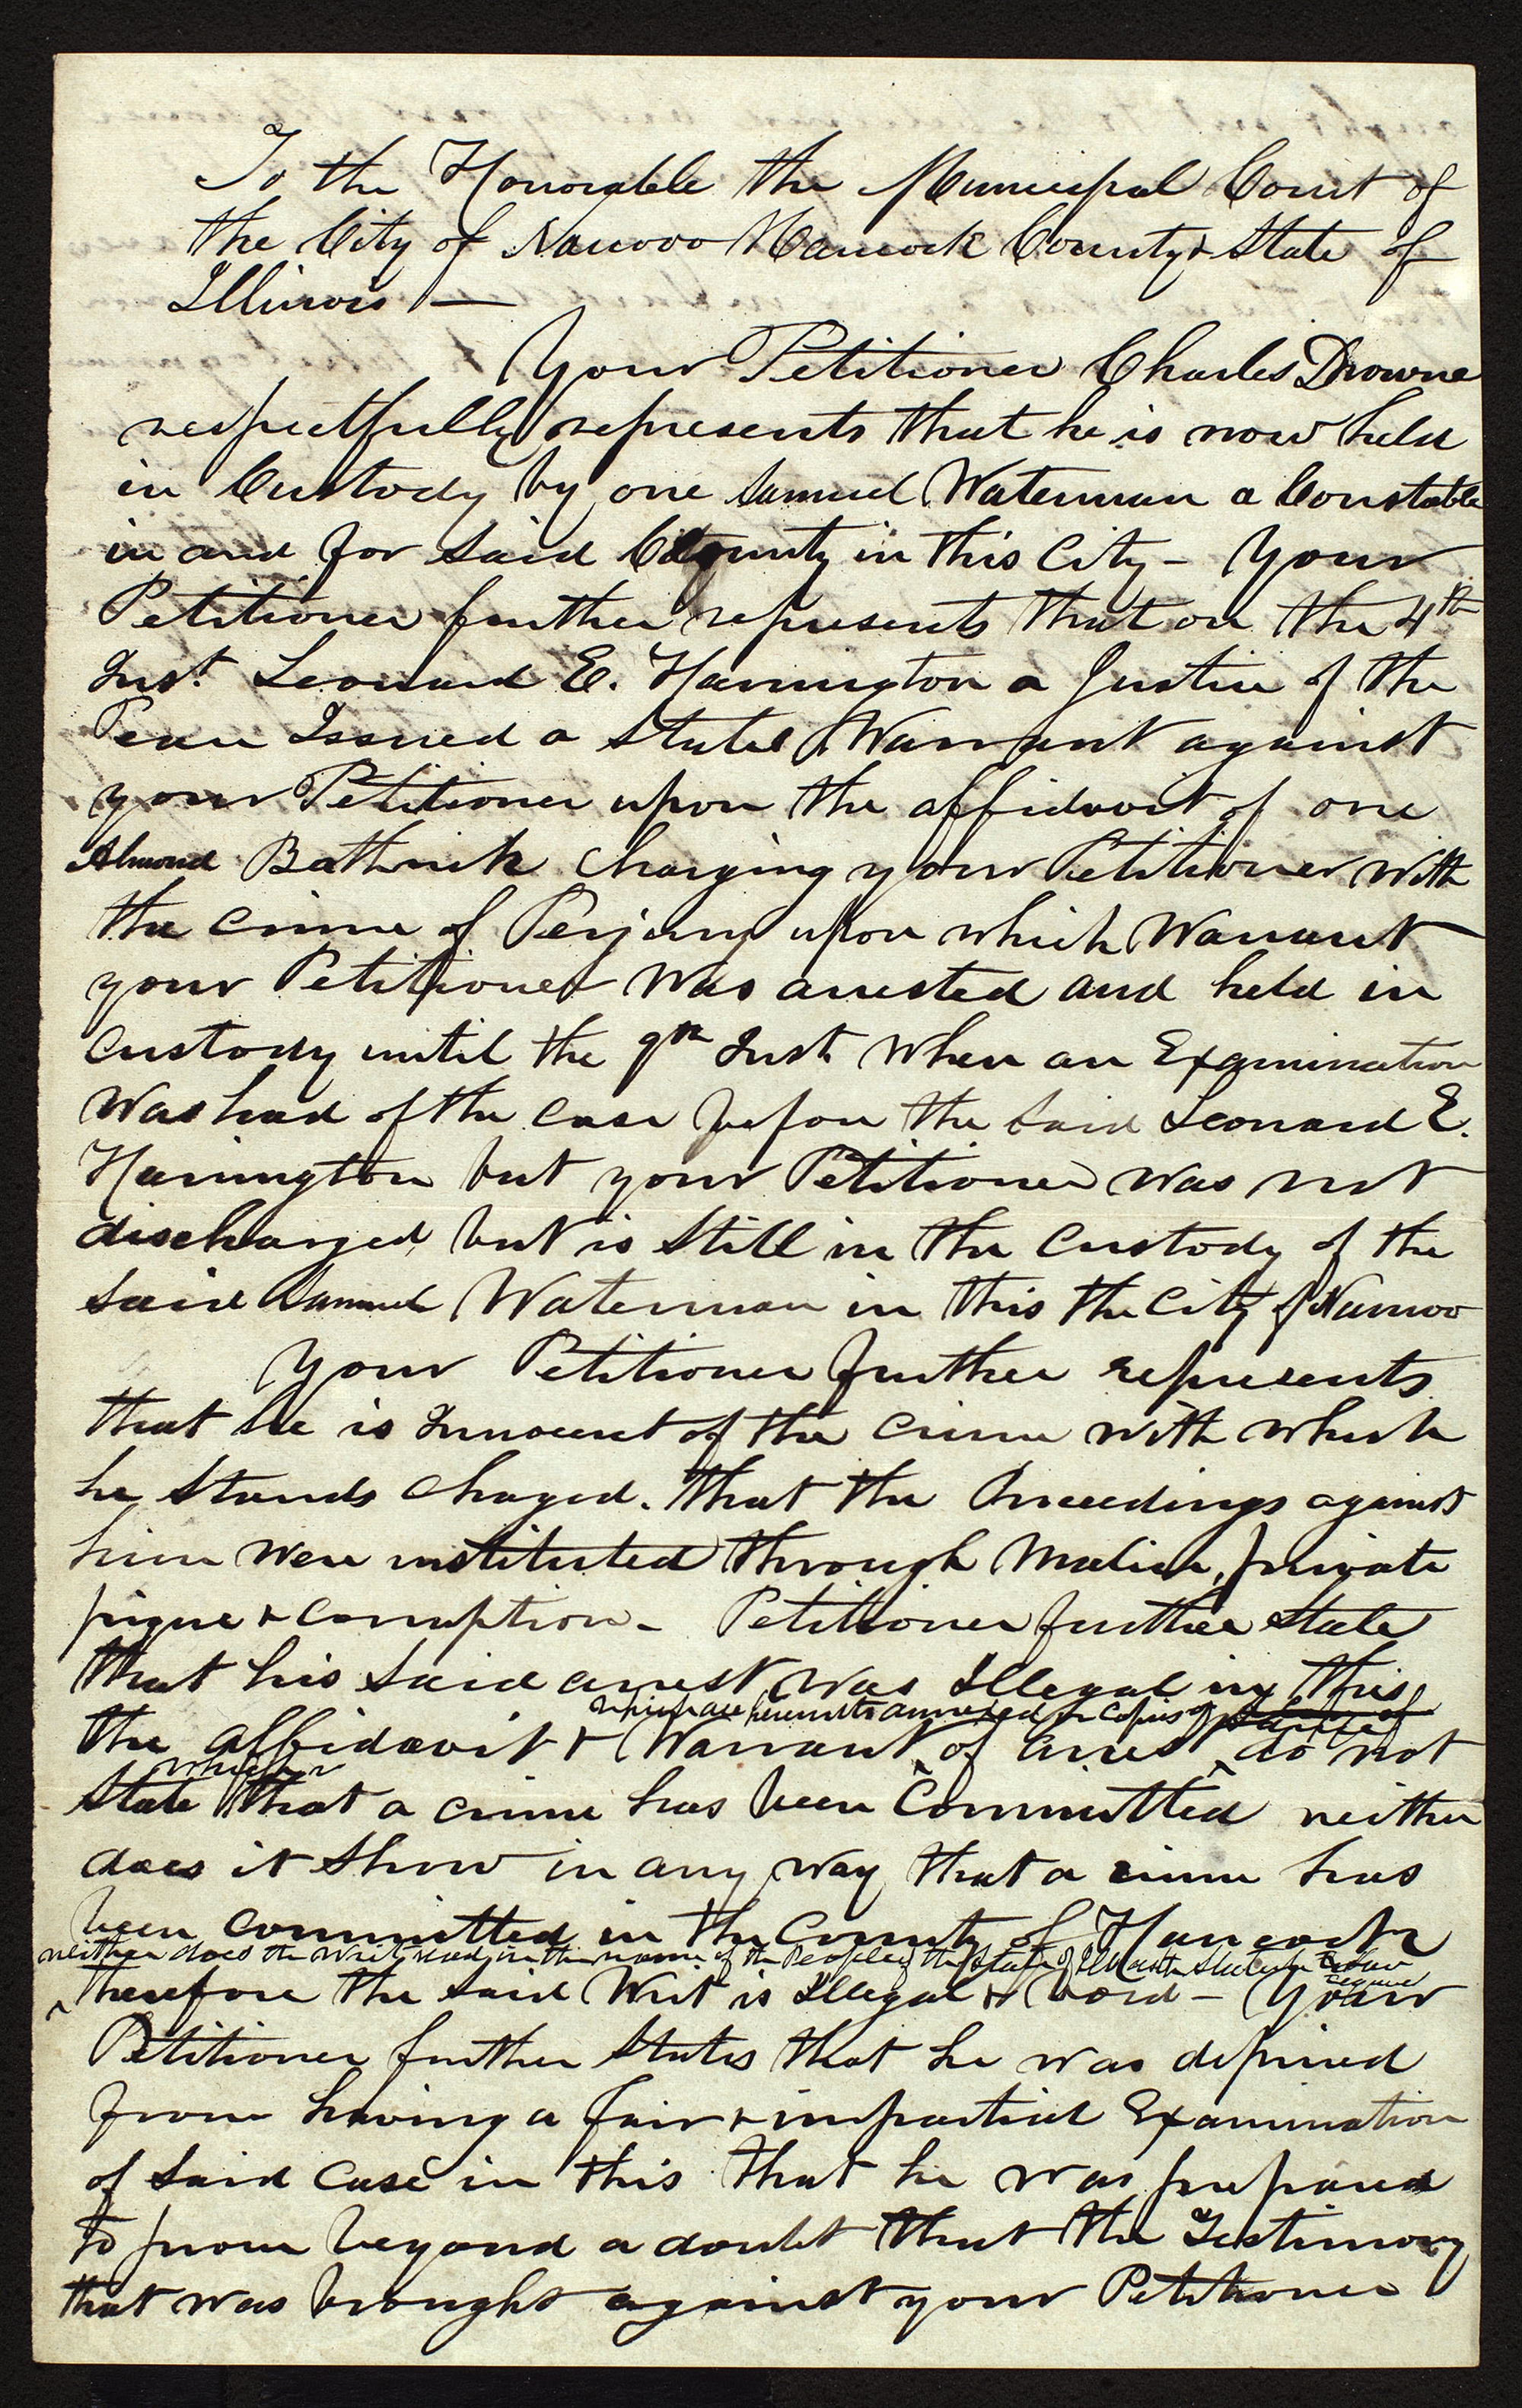 To the Honorable the Municipal Court of
the City of Nauvoo Hancock County & State of
Illinois —
Your Petitioner Charles Drowne
respectfully represents that he is now held
in Custody by one Samuel Waterman a Constable
in and for said County in this City – Your
Petitioner further represents that on the 4th
Inst. Leonard E. Harrington a Justice of the
Peace Issued a State Warrant against
your Petitioner upon the affidavit of one
Almond Bathrick Charging your Petitioner with
the crime of Perjury upon which Warrant
your Petitioner was arrested and held in
custody until the 9th Inst. when an Examination
was had of the case before the said Leonard E.
Harrington but your Petitioner was not
discharged, but is still in the Custody of the
said Samuel Waterman in this the City of Nauvoo
Your Petitioner further represents
that he is Innocent of the crime with which
he stands chaged. that the Proceedings against
him were instituted through Malice, private
pique & corruption – Petitioner further State
that his said arrest was Illegal in this
which are hereunto annexed or copies of
the affidavit & Warrant of arrest do not
State that a crime has been Committed neither
does it show in any way that a crime has
been committed in the County of Hancock
neither does the Writ read, in the name of the People of the State of Ills as the Statute require
therefore the said Writ is Illegal & void – Your
Petitioner further States that he was deprived
from having a fair & impartial Examination
of said case in this that he was prepared
to prove beyond a doubt that the Testimony
that was brought against your Petitioner